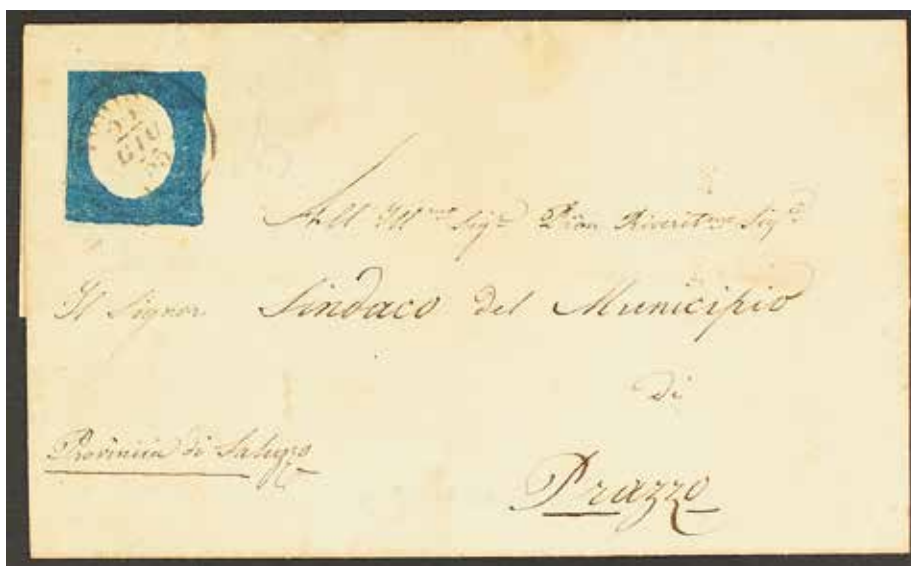 GIU
55
All' Ill.mo Sig.r Pron Riverit.mo Sig.r
Il Signor Sindaco del Municipio
di
Provincia di Saluzzo
Prazzo